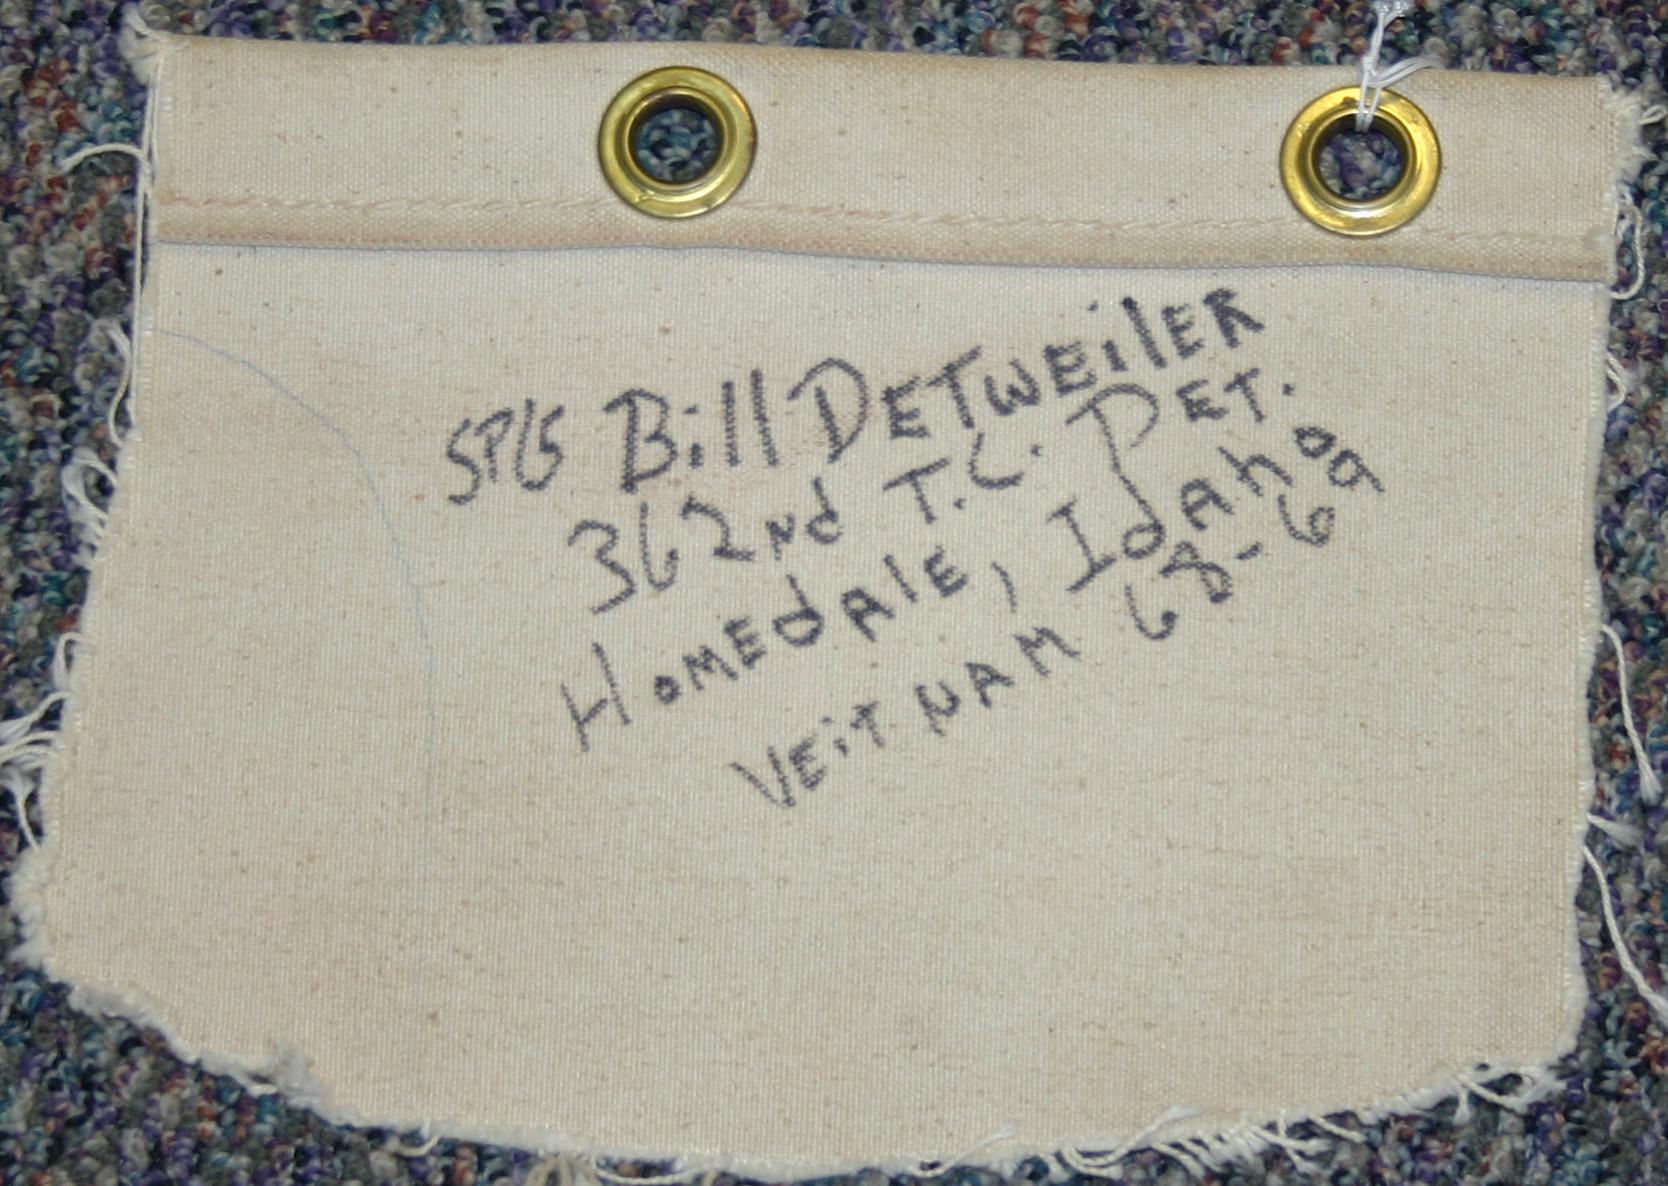 SP/5 Bill DETWEilER
362nd T.C. DET.
HOMEdAlE, IdAho
VEiT NAM 68-69